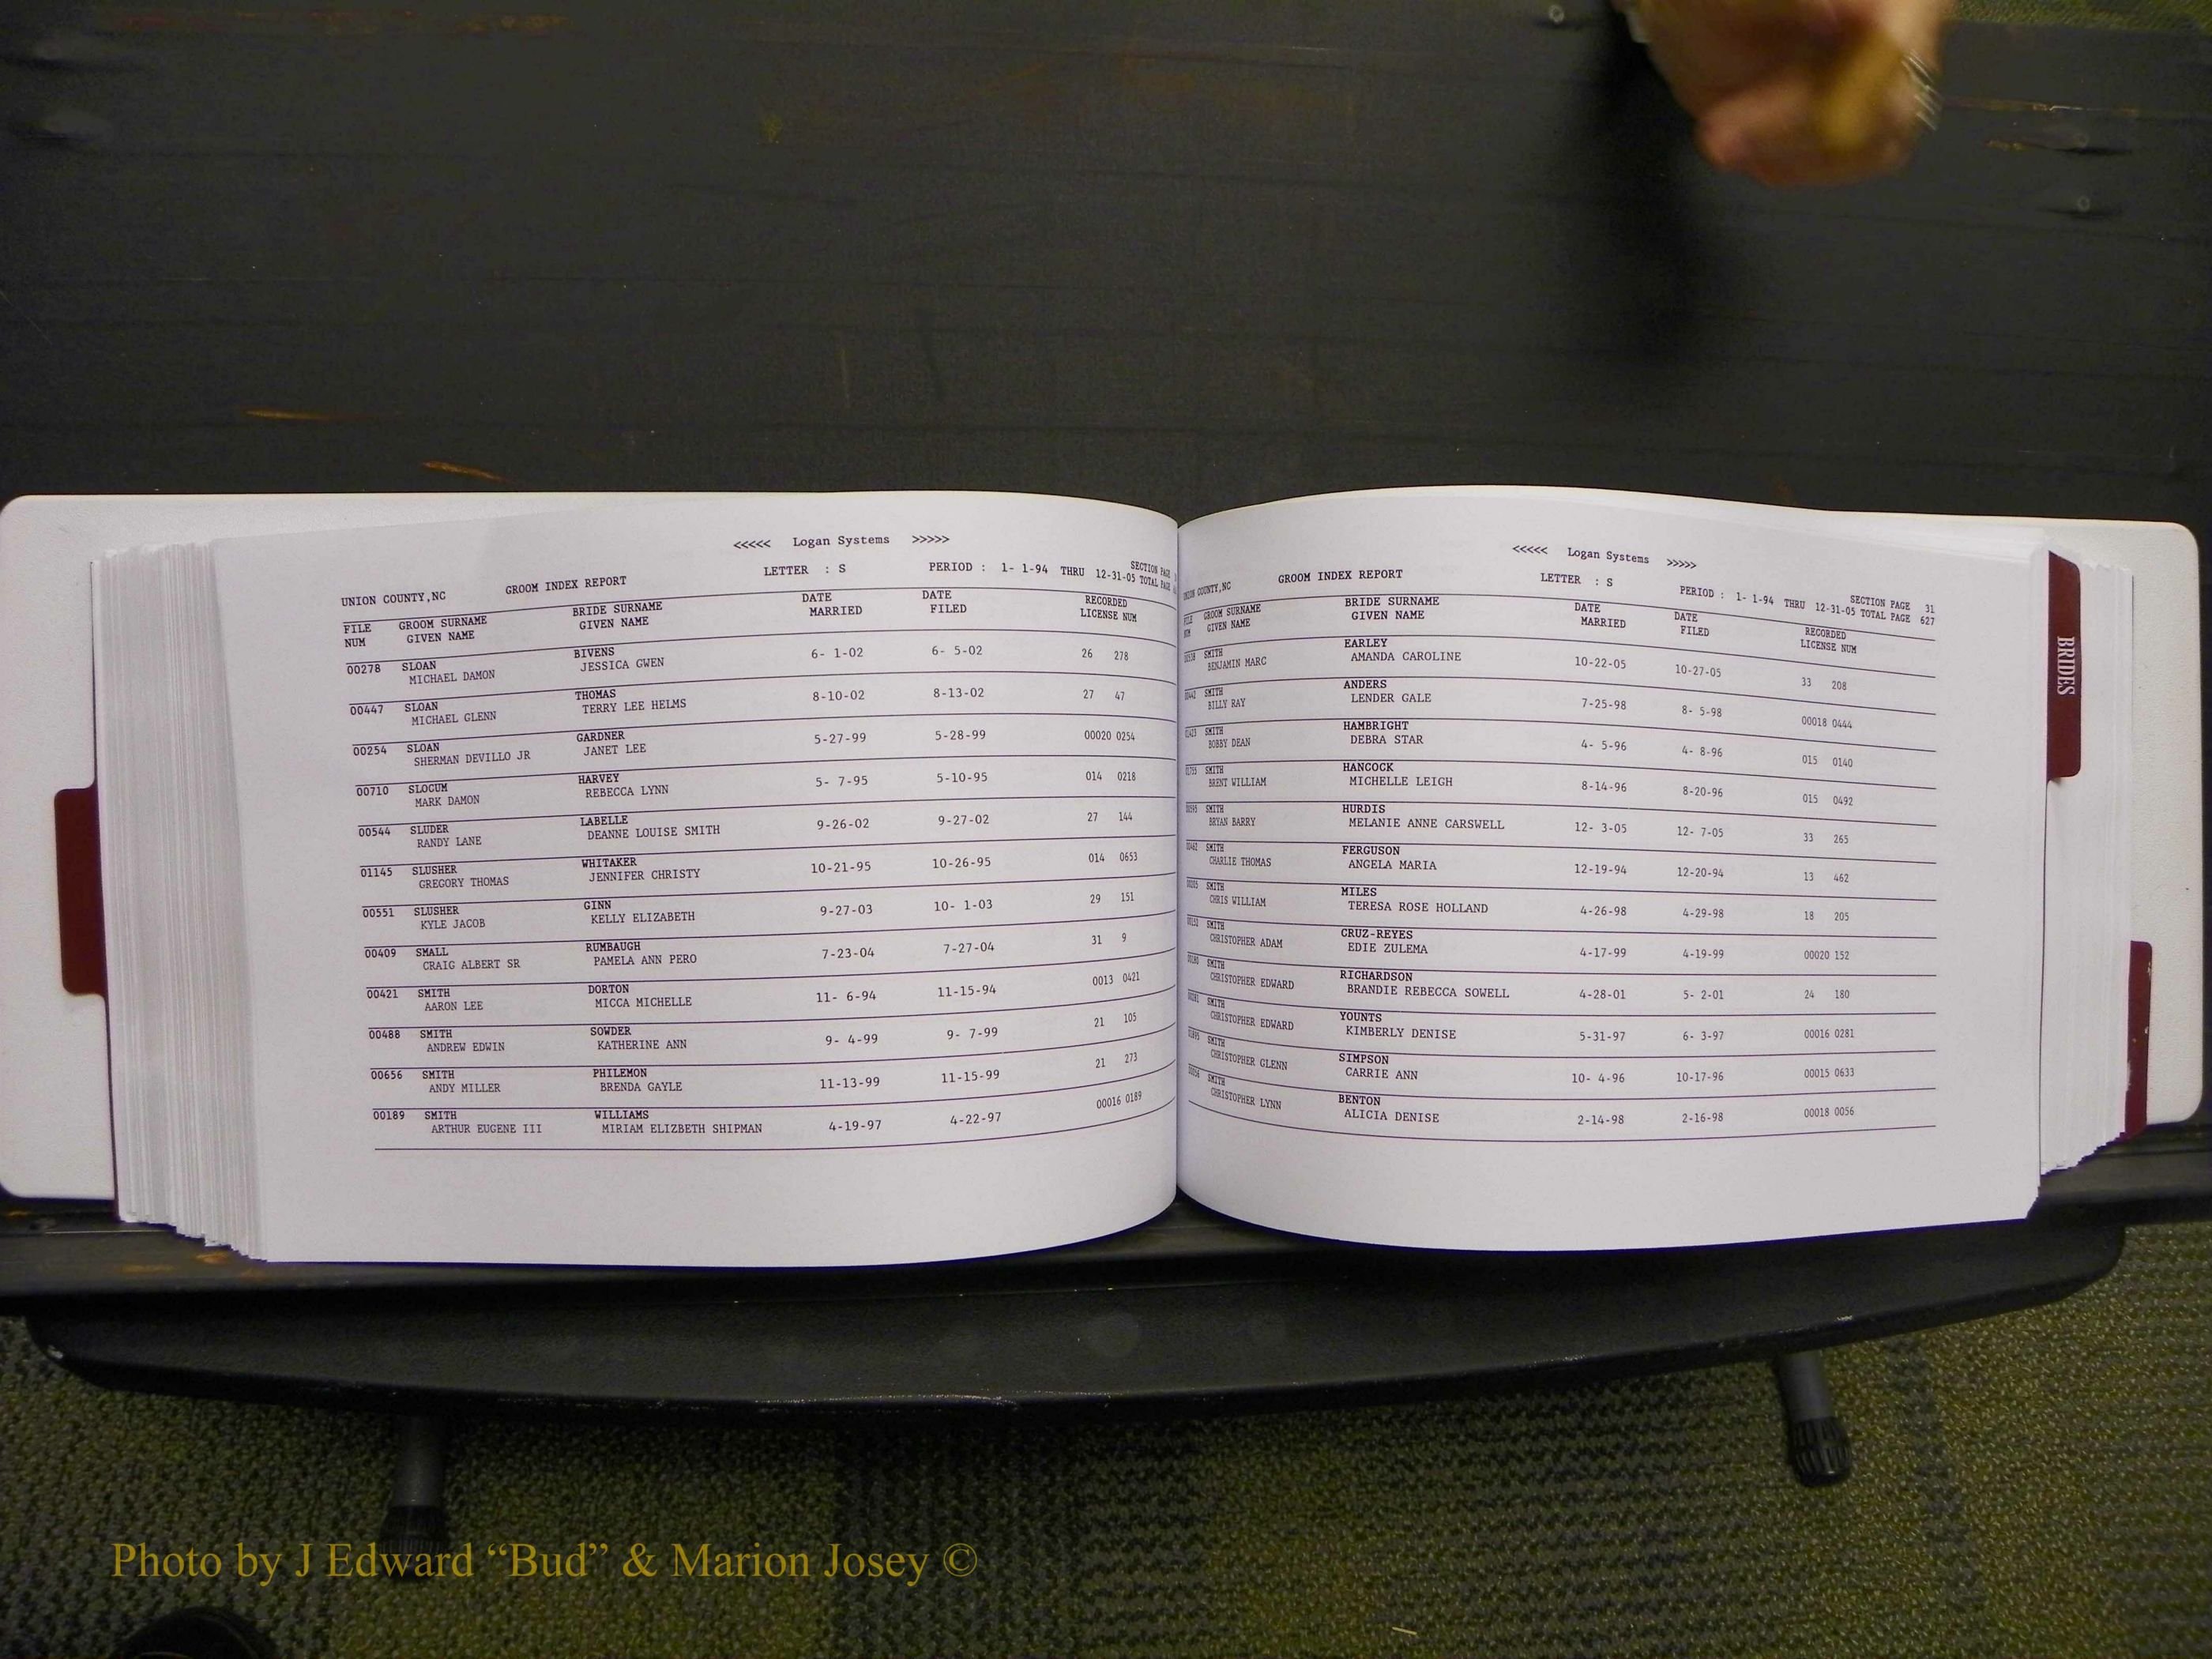 <<<<< Logan Systems >>>>>
UNION COUNTY,NC GROOM INDEX REPORT LETTER : S PERIOD : 1- 1-94 THRU 12-31-05 SECTION PAGE
TOTAL PAGE
FILE GROOM SURNAME BRIDE SURNAME DATE DATE RECORDED
NUM GIVEN NAME GIVEN NAME MARRIED FILED LICENSE NUM
00278 SLOAN BIVENS 6- 1-02 6- 5-02 26 278
MICHAEL DAMON JESSICA GWEN
00447 SLOAN THOMAS 8-10-02 8-13-02 27 47
MICHAEL GLENN TERRY LEE HELMS
00254 SLOAN GARDNER 5-27-99 5-28-99 00020 0254
SHERMAN DEVILLO JR JANET LEE
00710 SLOCUM HARVEY 5- 7-95 5-10-95 014 0218
MARK DAMON REBECCA LYNN
00544 SLUDER LABELLE 9-26-02 9-27-02 27 144
RANDY LANE DEANNE LOUISE SMITH
01145 SLUSHER WHITAKER 10-21-95 10-26-95 014 0653
GREGORY THOMAS JENNIFER CHRISTY
00551 SLUSHER GINN 9-27-03 10- 1-03 29 151
KYLE JACOB KELLY ELIZABETH
00409 SMALL RUMBAUGH 7-23-04 7-27-04 31 9
CRAIG ALBERT SR PAMELA ANN PERO
00421 SMITH DORTON 11- 6-94 11-15-94 0013 0421
AARON LEE MICCA MICHELLE
00488 SMITH SOWDER 9- 4-99 9- 7-99 21 105
ANDREW EDWIN KATHERINE ANN
00656 SMITH PHILEMON 11-13-99 11-15-99 21 273
ANDY MILLER BRENDA GAYLE
00189 SMITH WILLIAMS 4-19-97 4-22-97 00016 0189
ARTHUR EUGENE III MIRIAM ELIZBETH SHIPMAN
<<<<< Logan Systems >>>>>
UNION COUNTY,NC GROOM INDEX REPORT LETTER : S PERIOD : 1- 1-94 THRU 12-31-05 SECTION PAGE 31
TOTAL PAGE 627
FILE GROOM SURNAME BRIDE SURNAME DATE DATE RECORDED
NUM GIVEN NAME GIVEN NAME MARRIED FILED LICENSE NUM
SMITH EARLEY 10-22-05 10-27-05 33 208
BENJAMIN MARC AMANDA CAROLINE
SMITH ANDERS 7-25-98 8- 5-98 00018 0444
BILLY RAY LENDER GALE
SMITH HAMBRIGHT 4- 5-96 4- 8-96 015 0140
BOBBY DEAN DEBRA STAR
SMITH HANCOCK 8-14-96 8-20-96 015 0492
BRENT WILLIAM MICHELLE LEIGH
SMITH HURDIS 12- 3-05 12- 7-05 33 265
BRYAN BARRY MELANIE ANNE CARSWELL
SMITH FERGUSON 12-19-94 12-20-94 13 462
CHARLIE THOMAS ANGELA MARIA
SMITH MILES 4-26-98 4-29-98 18 205
CHRIS WILLIAM TERESA ROSE HOLLAND
SMITH CRUZ-REYES 4-17-99 4-19-99 00020 152
CHRISTOPHER ADAM EDIE ZULEMA
SMITH RICHARDSON 4-28-01 5- 2-01 24 180
CHRISTOPHER EDWARD BRANDIE REBECCA SOWELL
SMITH YOUNTS 5-31-97 6- 3-97 00016 0281
CHRISTOPHER EDWARD KIMBERLY DENISE
SMITH SIMPSON 10- 4-96 10-17-96 00015 0633
CHRISTOPHER GLENN CARRIE ANN
SMITH BENTON 2-14-98 2-16-98 00018 0056
CHRISTOPHER LYNN ALICIA DENISE
BRIDES
Photo by J Edward “Bud” & Marion Josey ©